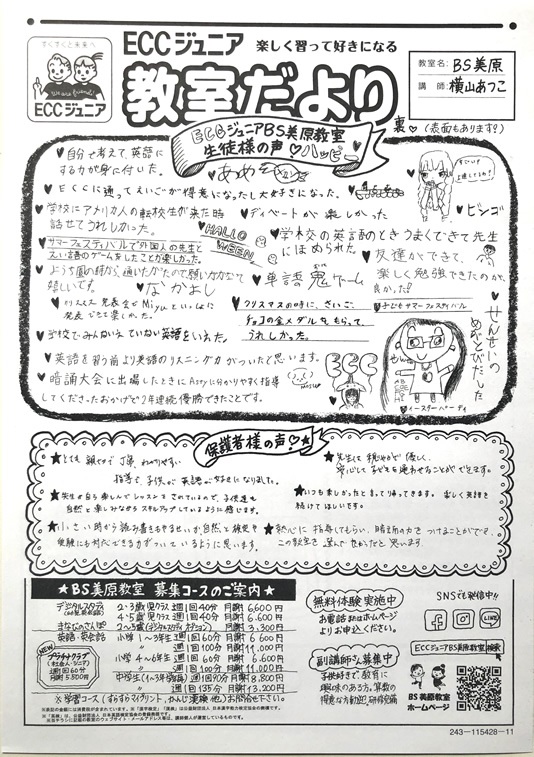 すくすくと未来へ
We are friends!
ECCジュニア
ECCジュニア 楽しく習って好きになる
教室だより
教室名: BS美原
講 師: 横山あつこ
裏♡(表面もあります?)
ECCジュニアBS美原教室
生徒様の声♡ハッピー
♥自分で考えて、英語に
する力が身に付いた。
♥ECCに通ってえいごが得意になったし大好きになった。
♥ビンゴ
♥学校にアメリカ人の転校生が来た時
話せてうれしかった。
♥ディベートが楽しかった
HALLOWEEN
♥学校の英語のときうまくできて先生
にほめられた。
♥サマーフェスティバルで外国人の先生と
えい語のゲームをしたことが楽しかった。
♥友達ができて、
楽しく勉強できたのが、
良かった!!
嬉しいです。
♥なかよし
♥単語鬼ゲーム
♥クリスマス発表会でMiyuといっしょに
発表できて楽しかった。
♥クリスマスの時に、さいごに
チョコの金メダルをもらって、
うれしかった。
♥子どもサマーフェスティバル
♥せんせいの
♥学校でみんないえていない英語をいえた。
♥英語を習う前より英語のリスニング力がついたと思います。
ECC
♥暗誦大会に出場したときに
してくださったおかげで2年連続優勝できたことです。
♥イースターパーティ
保護者様の声!
★とても親切で丁寧、わかりやすい
指導で、子供が英語が好きになりました。
★先生は穏やかで優しく、
安心して子どもを通わせることができます。
★先生が自ら楽しんでレッスンをされているので、子供達も
自然と楽しみながらスキルアップしているように感じます。
★いつも楽しかったと言って帰ってきます。楽しく英語を
続けてほしいです。
★小さい時から読み書きもやるせいか自然と検定や
受験にも対応できる力がついているように思います。
★熱心に指導してもらい、
この教室を選んで良かったと思います。
★BS美原教室 募集コースのご案内★
デジタルスタディ
2・3歳児クラス 週1回40分 月謝 6,600円
4・5歳児クラス 週1回40分 月謝 6,600円
まなびのさんぽ 2~5歳 月謝 3,300円
英語・英会話
小学1~3年生 週1回60分 月謝 6,600円
〃 週1回100分 月謝 11,000円
小学4~6年生 週1回60分 月謝 6,600円
〃 週1回100分 月謝 11,000円
中学生(1~3年 週1回90分 月謝 8,800円
週1回135分 月謝 13,200円
NEW
プラチナクラブ
(社会人・シニア)
週1回60分
月謝5,500円
無料体験実施中
お電話またはホームページ
よりお申込ください。
副講師さん募集中
子供好きで、教育に
興味のある方。算数の
得意な方歓迎。研修完備
SNSでも発信中!!
f
LINE
ECCジュニアBS美原教室 検索
BS美原教室
ホームページ
243-115428-11